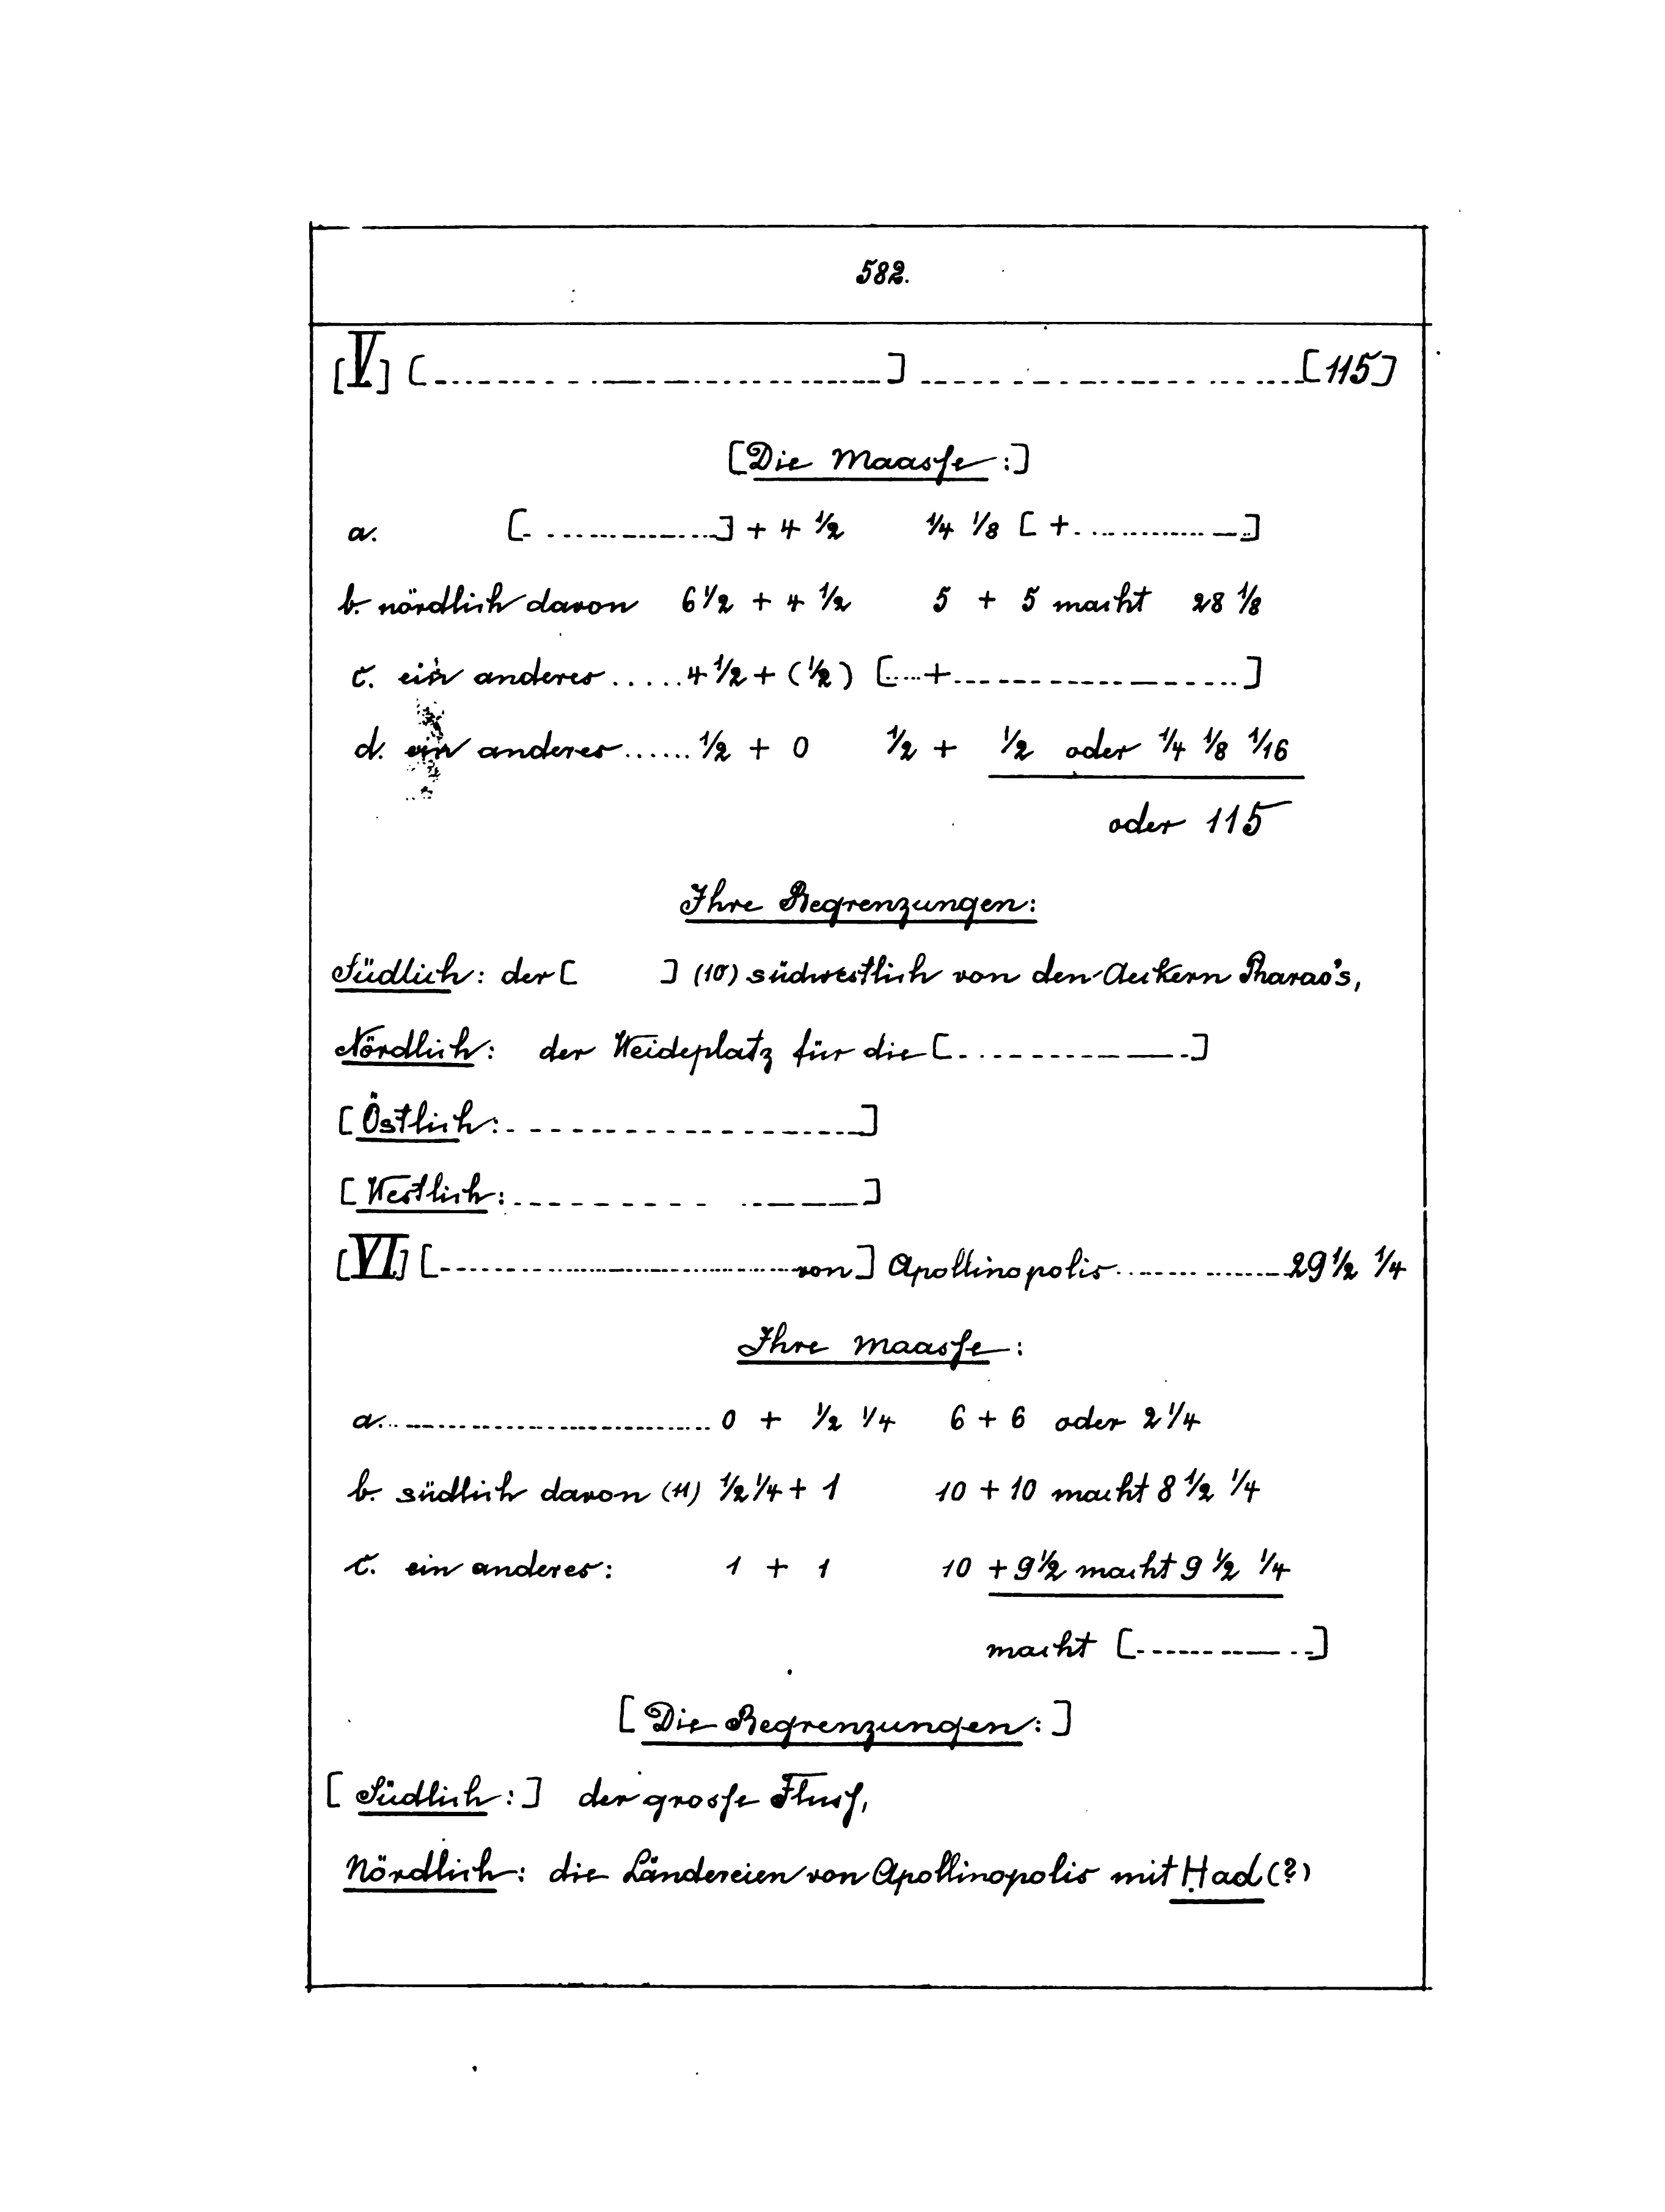 582.
[V.] [....................] .................... [115]
[Die Maasse:]
a. [..........] + 4 1/2 1/4 1/8 [ + ..........]
b. nördlich davon 6 1/2 + 4 1/2 5 + 5 macht 28 1/8
c. ein anderes ..... 4 1/2 + (1/2) [....+....................]
d. ein anderes ...... 1/2 + 0 1/2 + 1/2 oder 1/4 1/8 1/16
oder 115
Ihre Begrenzungen:
Südlich: der [ ] (10) südwestlich von den Aeckern Pharao's,
Nördlich: der Weideplatz für die [..............]
[Östlich: ....................]
[Westlich: ....................]
[VI.] [....................von] Apollinopolis .......... 29 1/2 1/4
Ihre Maasse:
a. .................... 0 + 1/2 1/4 6 + 6 oder 2 1/4
b. südlich davon (11) 1/2 1/4 + 1 10 + 10 macht 8 1/2 1/4
c. ein anderes: 1 + 1 10 + 9 1/2 macht 9 1/2 1/4
macht [..............]
[Die Begrenzungen:]
[Südlich:] der grosse Fluss,
Nördlich: die Ländereien von Apollinopolis mit Ḥad (?)